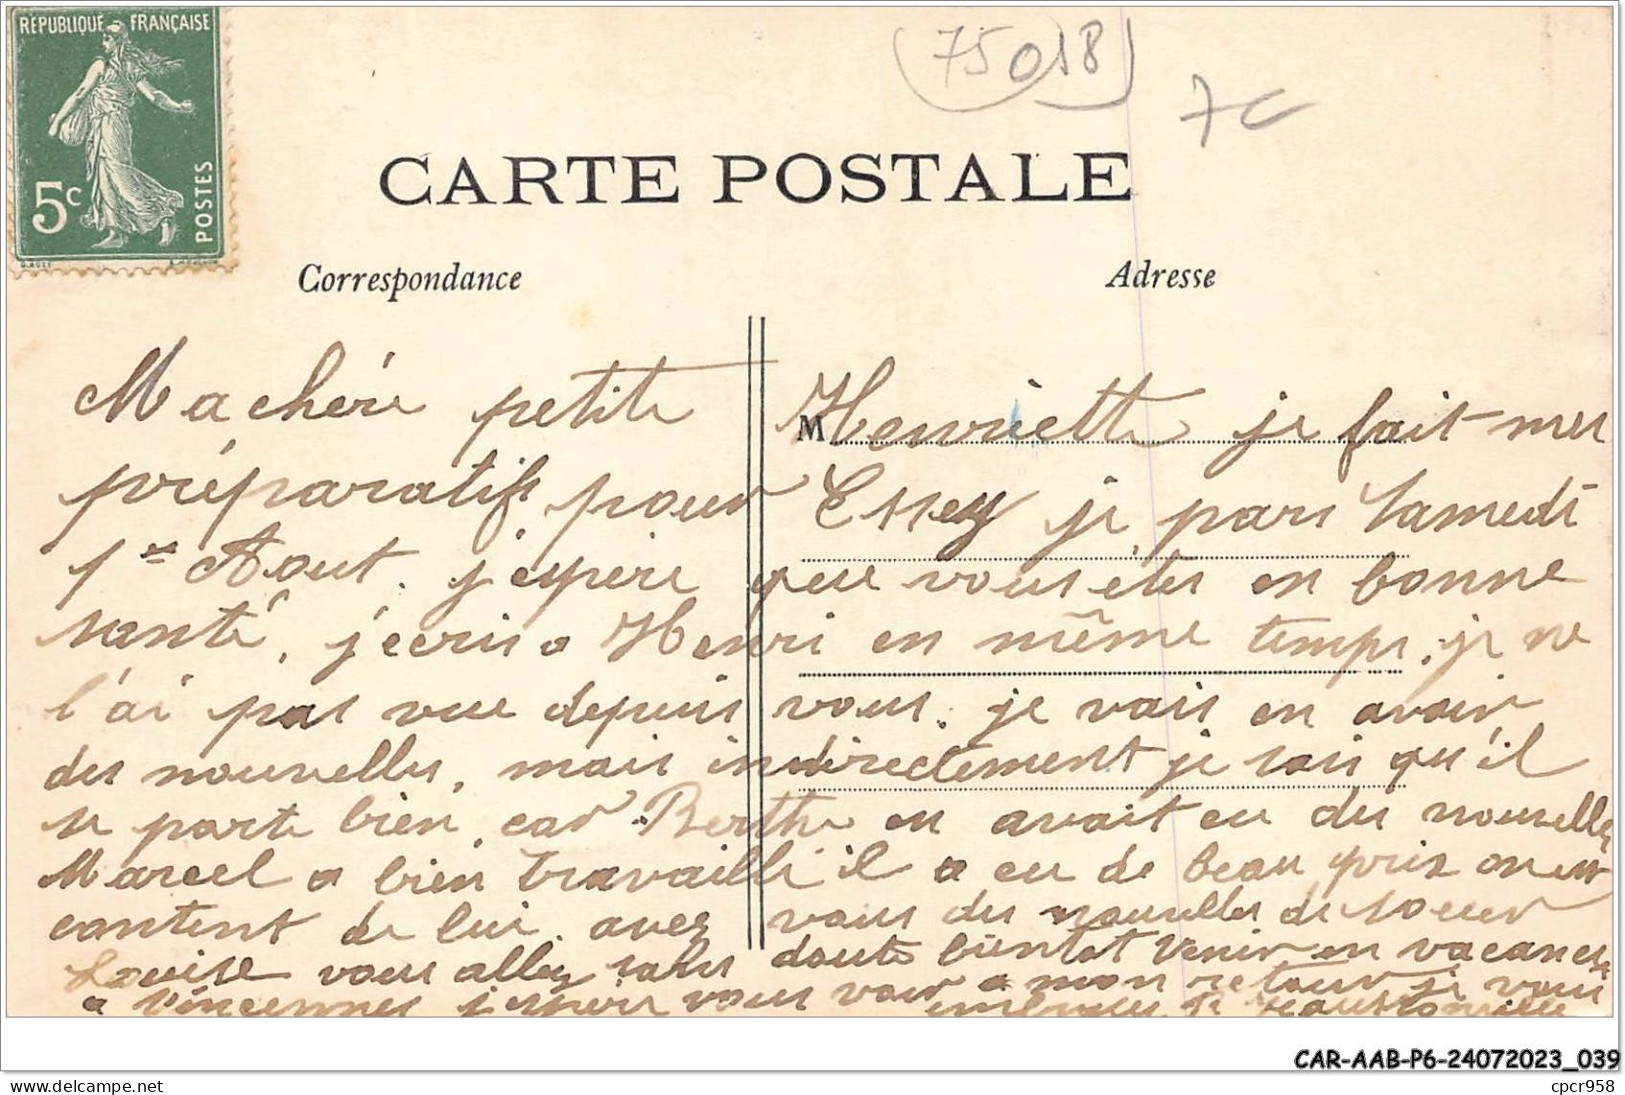 RÉPUBLIQUE FRANÇAISE
5c POSTES
75018
7c
CARTE POSTALE
Correspondance
Adresse
M
Ma chère petite Henriette je fait mes
préparatifs pour Essey je pars Samedi
1er Aout. j'espère que vous êtes en bonne
santé, j'écris a Henri en même temps. je ne
l'ai pas vue depuis vous. je vais en avoir
des nouvelles, mais indirectement je sais qu'il
se porte bien car Berthe en avait eu des nouvelles
Marcel a bien travaillé il a eu de beau prix on est
content de lui. avez vous des nouvelles de soeur
Louise vous allez sans doute bientot venir en vacances
a Vincennes j'espère vous voir a mon retour je vous
embrasse
CAR-AAB-P6-24072023_039
www.delcampe.net
cpcr958